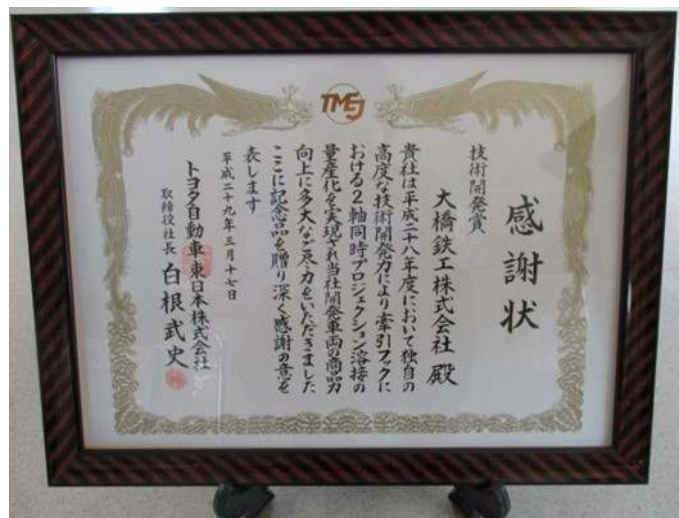 TMEJ
感謝状
技術開発賞
大橋鉄工株式会社 殿
貴社は平成二十八年度において独自の
高度な技術開発力により牽引フックに
おける2軸同時プロジェクション溶接の
量産化を実現され当社開発車両の商品力
向上に多大なご尽力をいただきました
ここに記念品を贈り深く感謝の意を
表します
平成二十九年三月十七日
トヨタ自動車東日本株式会社
取締役社長 白根武史